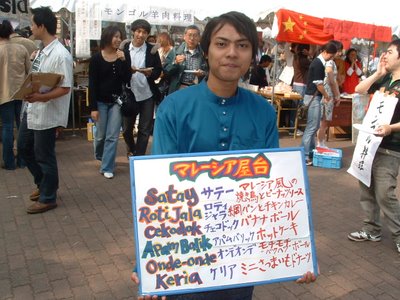 モンゴル羊肉料理
マレーシア屋台
Satay サテー マレーシア風の焼鳥とピーナッツソース
Roti Jala ロティジャラ 網パンとチキンカレー
Cekodok チェコドック バナナボール
Apam Balik アパムバリック ホットケーキ
Onde-onde オンデオンデ モチモチココナッツボール
Keria ケリア ミニさつまいもドーナツ